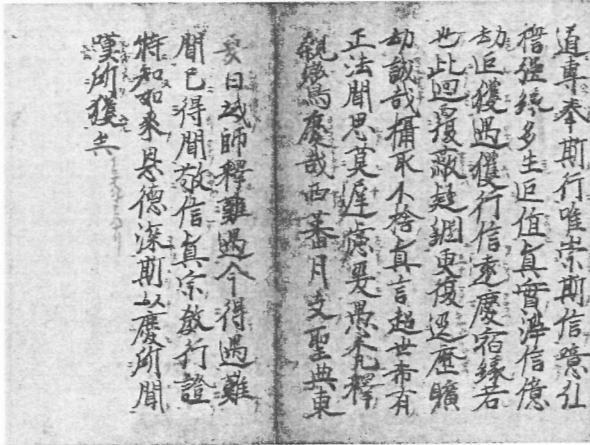 道專奉斯行唯崇斯信噫弘
誓强緣多生叵值眞實淨信億
劫叵獲遇獲行信遠慶宿緣若
也此迴覆蔽疑網更復逕歷曠
劫誠哉攝取不捨眞言超世希有
正法聞思莫遲慮爰愚禿釋
親鸞慶哉西蕃月支聖典東
夏日域師釋難遇今得遇難
聞已得聞敬信眞宗教行證
特知如來恩德深斯以慶所聞
嘆所獲矣